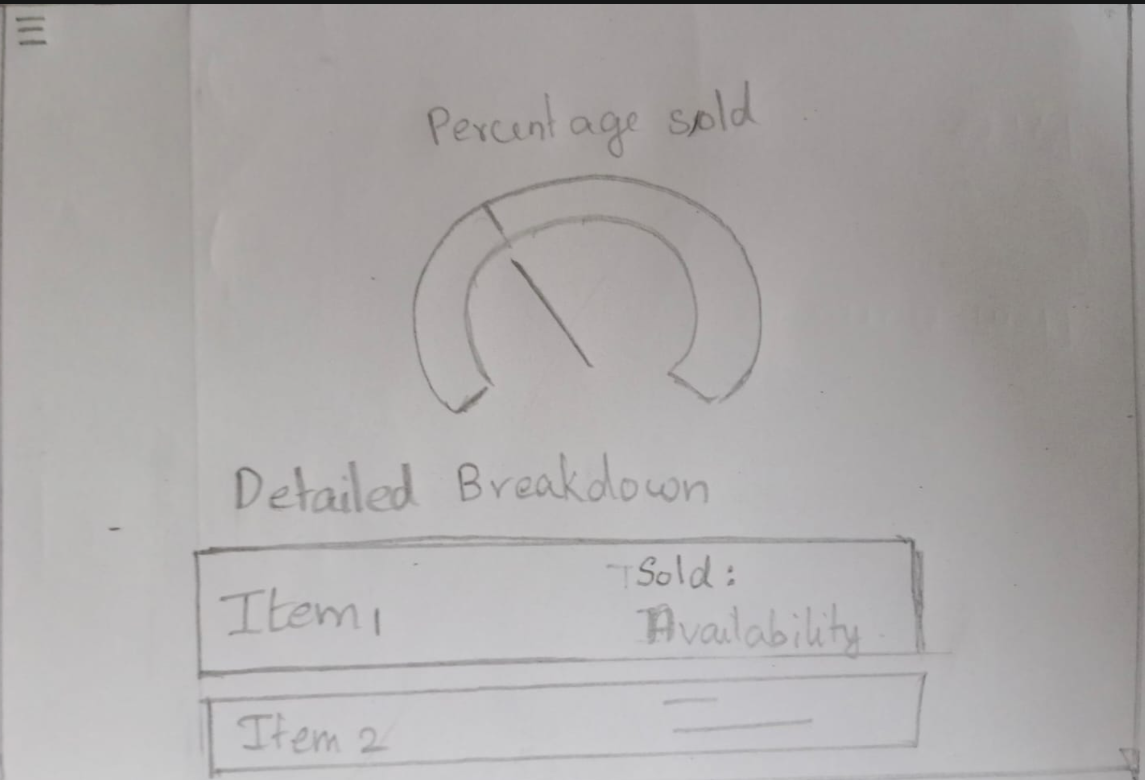 Percentage sold
Detailed Breakdown
Item 1
Sold:
Availability
Item 2